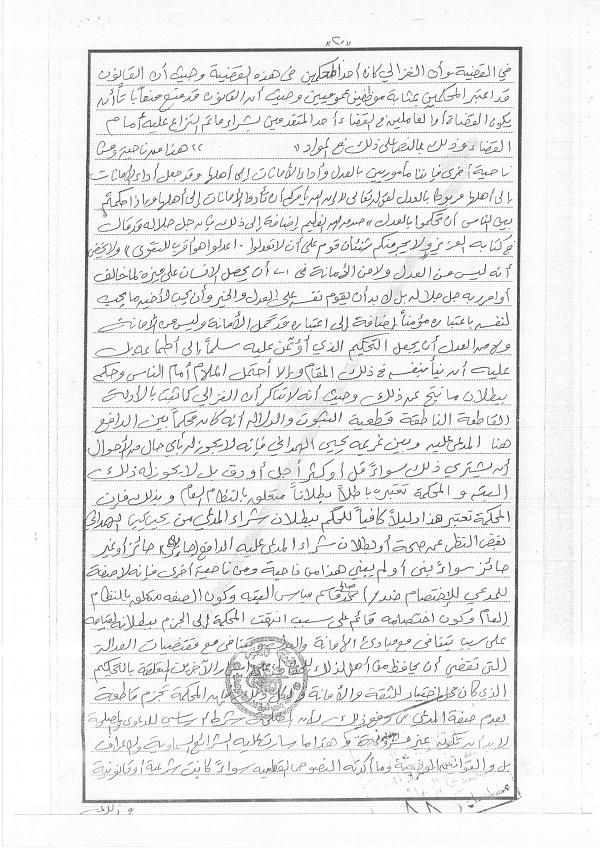 «٢٠»
في القضية وأن الغزالي كان أحد المحكمين في هذه القضية وحيث أن القانون
قد اعتبر المحكمين بمثابة موظفين عموميين وحيث أن القانون قد منع منعاً باتاً أن
يكون القضاة أو العاملين في القضاء أحد المتقدمين بشراء ما تم النزاع عليه أمام
القضاء وذلك بالنص على ذلك في المواد » « هذا من ناحية ومن
ناحية أخرى فإننا مأمورين بالعدل وأداء الأمانات إلى أهلها وقد جعل أداء الأمانات
إلى أهلها مربوطاً بالعدل لقوله تعالى إن الله يأمركم أن تأدوا الأمانات إلى أهلها وإذا حكمتم
بين الناس أن تحكموا بالعدل» صدق الله العظيم إضافة إلى ذلك فإنه جل جلاله قد قال
في كتابه العزيز ولا يجرمنكم شنئان قوم على أن لا تعدلوا . اعدلوا هو أقرب للتقوى» ولا يخفى
أنه ليس من العدل ولا من الأمانة في أن يحصل الإنسان على ميزة لمخالف
أوامر ربه جل جلاله بل لا بد أن يقوم نفسه على العدل والخير وأن يحب لأخيه ما يحب
لنفسه باعتباره مؤمناً إضافة إلى اعتباره قد تحمل الأمانة وليس من الأمانة
ولا من العدل أن يجعل التحكيم الذي أؤتمن عليه سلماً إلى أطماعه بل
عليه أن ينأ بنفسه في ذلك المقام وإلا أحتمل الملام أمام الناس وحكم
ببطلان ما نتج عن ذلك وحيث أنه لا تناكر أن الغزالي كما ثبت بالأدلة
القاطعة الناطقة قطعية الثبوت والدلالة أنه كان محكماً بين الدافع
هنا المدعى عليه وبين غريمه يحيى الهمداني فإنه لا يجوز له بأي حال من الأحوال
أن يشتري ذلك سواءً قل أو كثر أجل أو دق بل لا يجوز له ذلك
البتة والمحكمة تعتبره باطلاً بطلاناً متعلق بالنظام العام وبذلك فإن
المحكمة تعتبر هذا دليلاً كافياً للحكم ببطلان شراء المدعي من يحيى الهمداني
بغض النظر عن صحة أو بطلان شراء المدعى عليه الدافع جائز أو غير
جائز سواءً بني أو لم يبني هذا من ناحية ومن ناحية أخرى فإنه لا صفة
للمدعي للإختصام ضد صالح قاسم مياس البتة وكون الصفة متعلقة بالنظام
العام وكون اختصامه قائم على سبب انتهت المحكمة إلى الجزم ببطلانه لقيامه
على سبب يتنافى مع مبادئ الأمانة والعدل ويتنافى مع مقتضيات العدالة
التي تقتضي أن يحافظ من أهل لذلك على أسرار الآخرين المتعلقة بالتحكيم
الذي كان محل اختبار للثقة والأمانة ولأجل ذلك فإن المحكمة تجزم قاطعة
بعدم صفة المدعي لأن المصلحة شرط أساسي للدعوى والمصلحة
لا بد أن تكون غير وهذا ما سارت عليه الشرائع السماوية والأعراف
بل والقوانين الوضعية وما أكدته النصوص القطعية سواءً كانت شرعية أو قانونية
وذلك